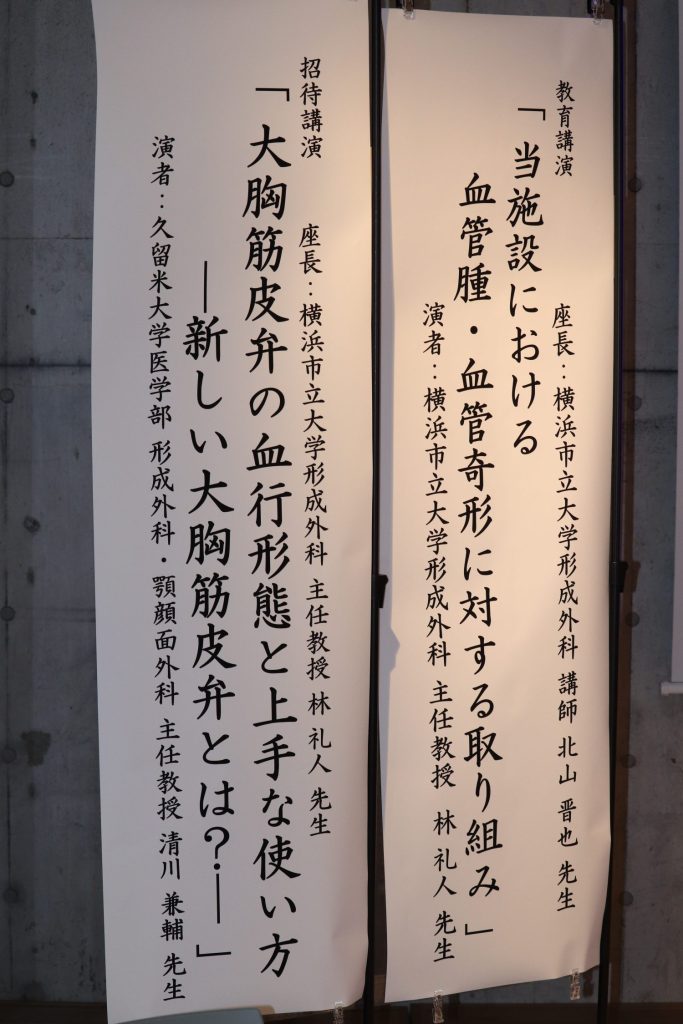 教育講演
座長：横浜市立大学形成外科 講師 北山 晋也 先生
「当施設における
血管腫・血管奇形に対する取り組み」
演者：横浜市立大学形成外科 主任教授 林 礼人 先生
招待講演
座長：横浜市立大学形成外科 主任教授 林 礼人 先生
「大胸筋皮弁の血行形態と上手な使い方
―新しい大胸筋皮弁とは？―」
演者：久留米大学医学部 形成外科・顎顔面外科 主任教授 清川 兼輔 先生